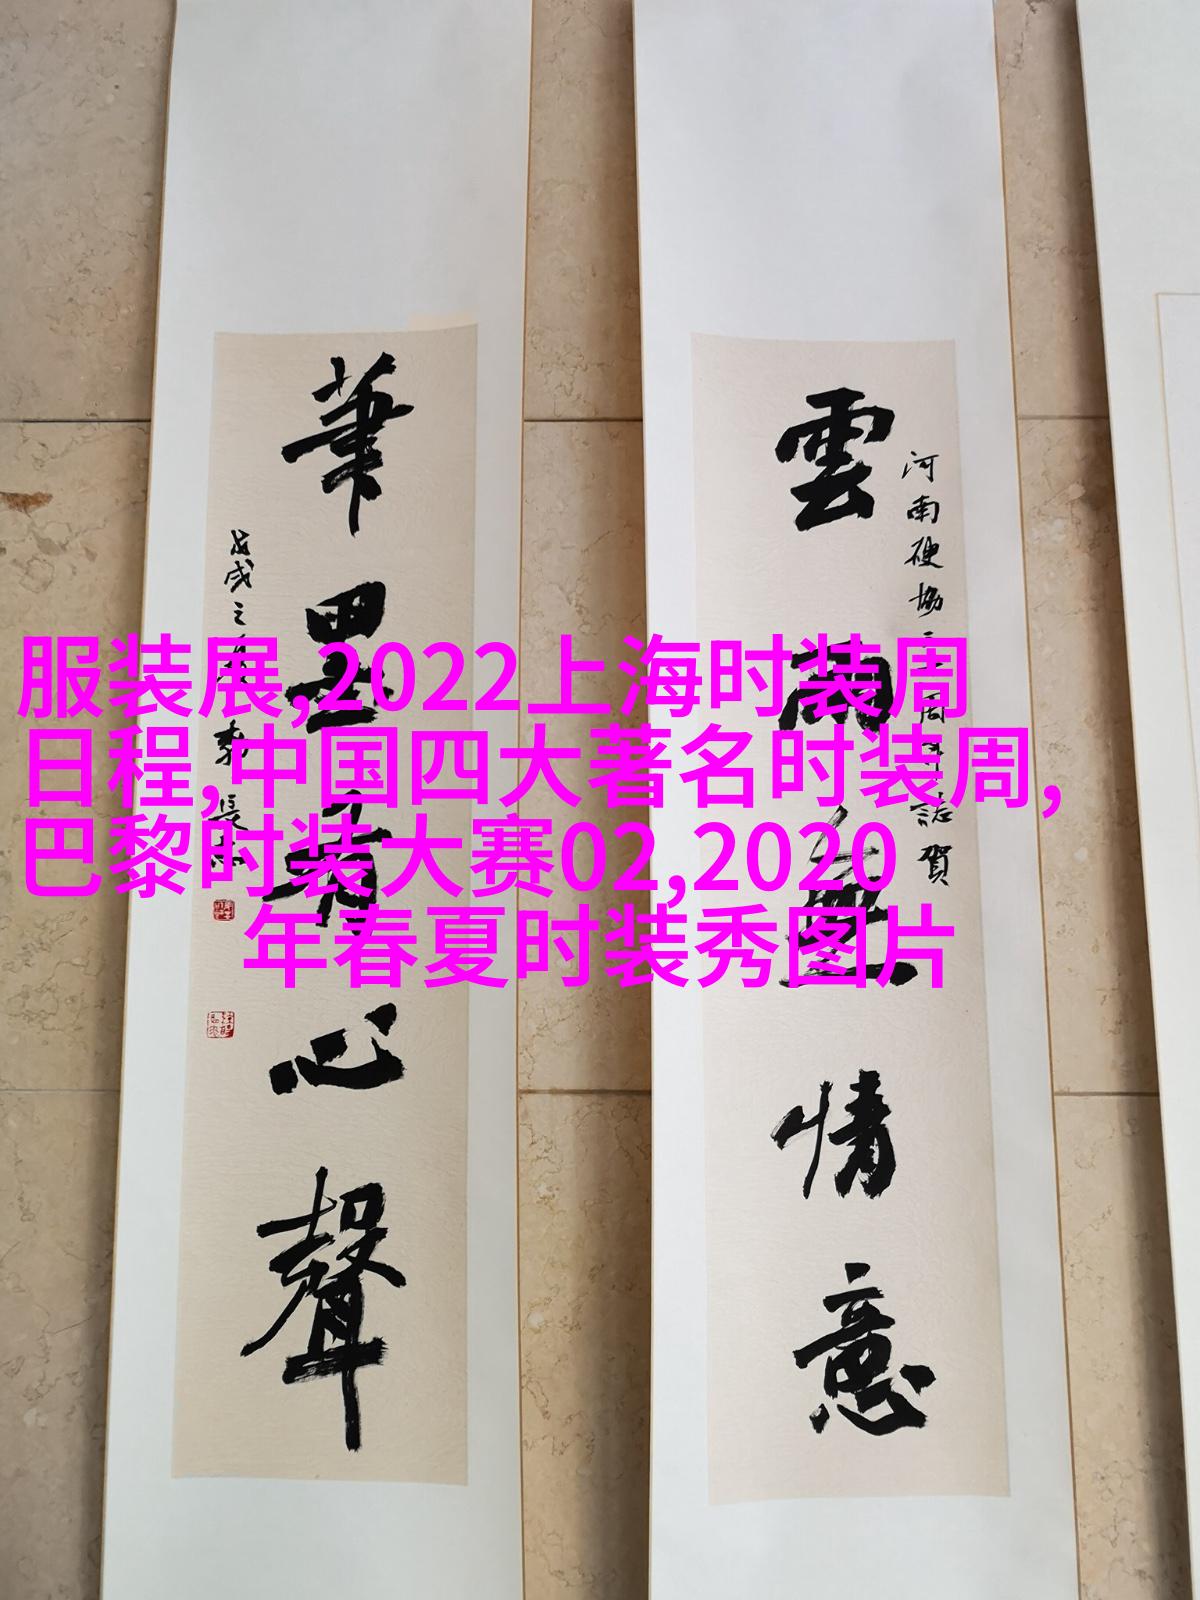 服装展,2022上海时装周
日程,中国四大著名时装周,
巴黎时装大赛02,2020
年春夏时装秀图片
河南硬協周年誌賀
雲雨無情意
筆墨有心聲
戊戌之